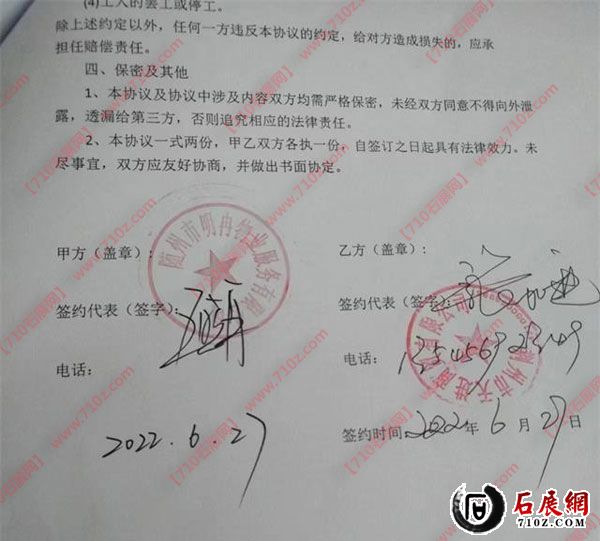 (4)工人的罢工或停工。
除上述约定以外，任何一方违反本协议的约定，给对方造成损失的，应承
担任赔偿责任。
四、保密及其他
1、本协议及协议中涉及内容双方均需严格保密，未经双方同意不得向外泄
露，透漏给第三方，否则追究相应的法律责任。
2、本协议一式两份，甲乙双方各执一份，自签订之日起具有法律效力。未
尽事宜，双方应友好协商，并做出书面协定。
甲方（盖章）：
乙方（盖章）：
随州市明冉物业服务有限
签约代表（签字）：
签约代表（签字）：
电话：
电话：
2022.6.27
签约时间：2022年6月27日
【710石展网】www.710z.com
石展網
710Z.COM